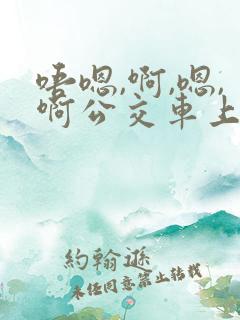 唔嗯,啊,嗯,
啊公交車上
約翰遜
未经同意禁止转载